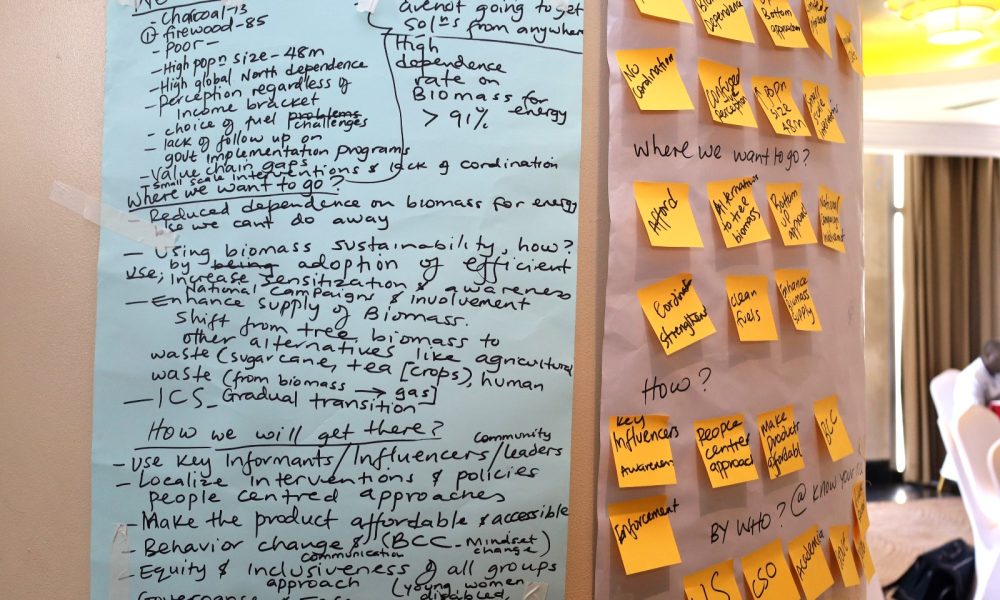 - Charcoal-13
① firewood-85
- Poor -
- High popn size - 48m
- High global North dependence
- Perception regardless of
income bracket
- choice of fuel problems
challenges
- lack of follow up on
govt implementation programs
- Value chain gaps
- Small scale interventions & lack of cordination
are not going to get
solns from anywhere
High
dependence
rate on
Biomass for
energy
> 91%
Where we want to go?
- Reduced dependence on biomass for energy
we cant do away
- Using biomass sustainability, how?
by being adoption of efficient
use; Increase sensitization & awareness
National Campaigns & involvement
- Enhance supply of Biomass.
Shift from tree biomass to
other alternatives like agricultural
waste (sugarcane, tea [crops), human
waste (from biomass → gas]
- ICS - Gradual transition
How we will get there?
- Use Key Informants/Influencers/leaders
community
- Localize interventions & policies
people centred approaches
- Make the product affordable & accessible
- Behavior change & (BCC - Mindset
communication change)
- Equity & inclusiveness of all groups
approach (young women
disabled,
Governance &
Dependence
Bottom
approach
No
Coordination
Confused
perception
↑ Popn
Size
48m
Small
Scale
Where we want to go?
Afford
Alternatives
to tree
biomass
Bottom
up
approach
National
Campaigns
Involvement
Cordinat
Strengthen
clean
fuels
Enhance
Biomass
Supply
How?
Key
Influencers
Awareness
People
center
approach
Make
Product
affordabl
BCC
Enforcement
BY WHO? @ KNOW YOUR
CSO
Academia